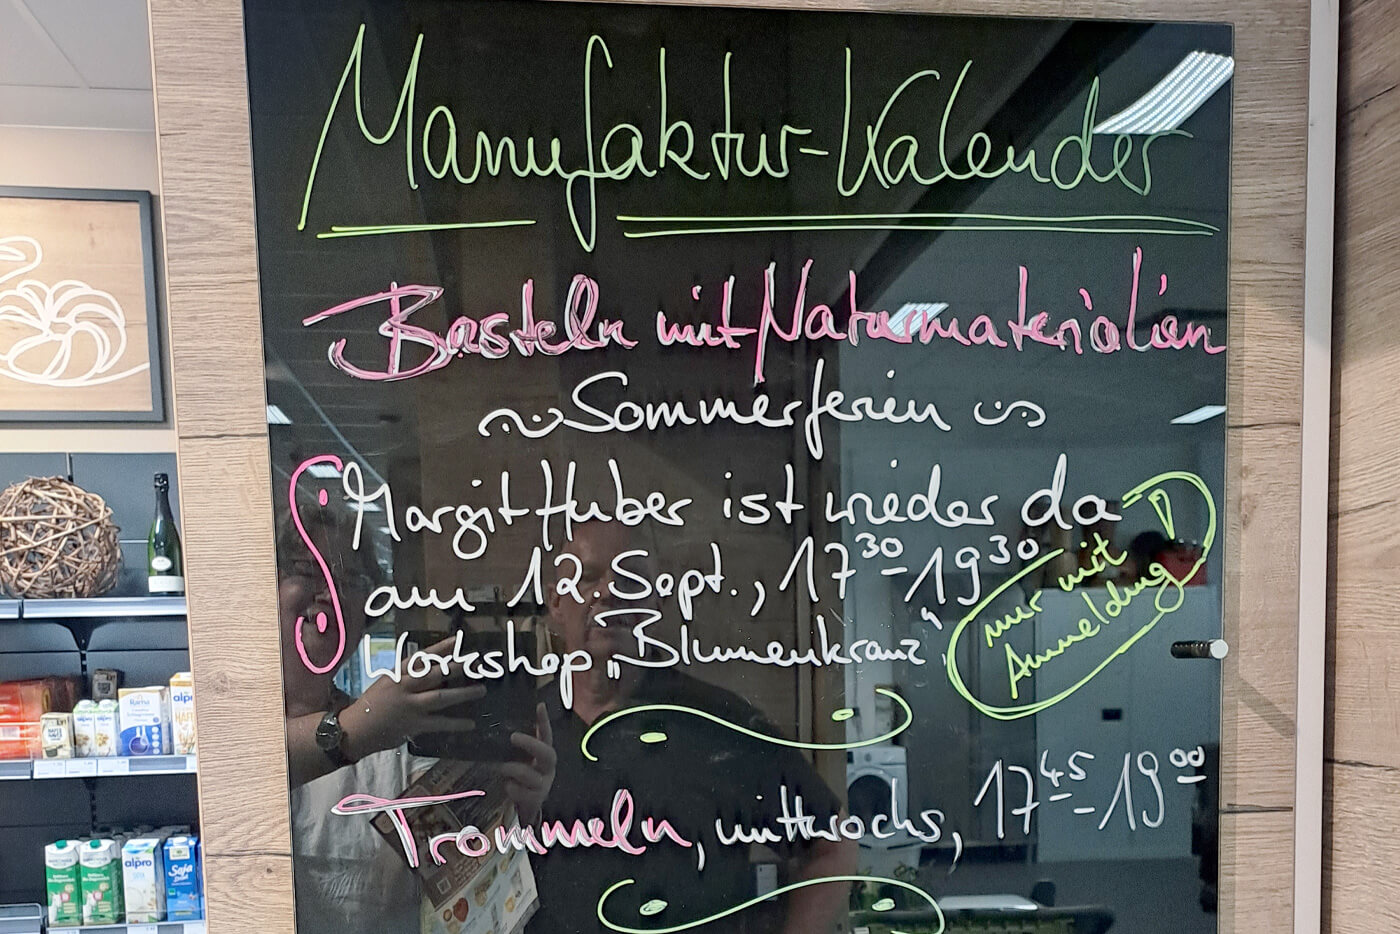 Manufaktur-Kalender
Basteln mit Naturmaterialien
Sommerferien
Margit Huber ist wieder da
am 12. Sept., 17³⁰-19³⁰
Workshop „Blumenkranz“
nur mit
Anmeldung
Trommeln, mittwochs, 17⁴⁵-19⁰⁰
Rama
alpro
alpro
SOJA
Soja